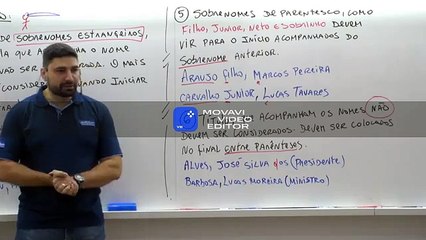 DE SOBRENOMES ESTRANGEIROS,
O NOME
NÃO SER O MAIS
CONSIDERADO QUANDO INICIAR
⑤ SOBRENOMES DE PARENTESCO, COMO
FILHO, JUNIOR, NETO E SOBRINHO DEVEM
VIR PARA O INÍCIO ACOMPANHADOS DO
SOBRENOME ANTERIOR.
ARAUJO FILHO, MARCOS PEREIRA
CARVALHO JUNIOR, LUCAS TAVARES
ACOMPANHAM OS NOMES NÃO
DEVEM SER CONSIDERADOS. DEVEM SER COLOCADOS
NO FINAL ENTRE PARÊNTESES.
ALVES, JOSÉ SILVA (PRESIDENTE)
BARBOSA, LUCAS MOREIRA (MINISTRO)
MOVAVI
VIDEO
EDITOR